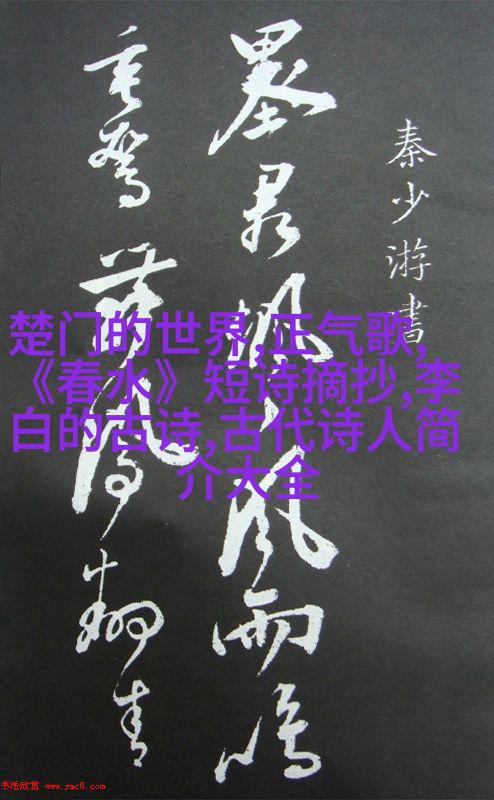 秦少游書
墨君颯々風雨鳴
楚门的世界,正气歌,
《春水》短诗摘抄,李
白的古诗,古代诗人简
介大全
书法欣赏 www.yac8.com